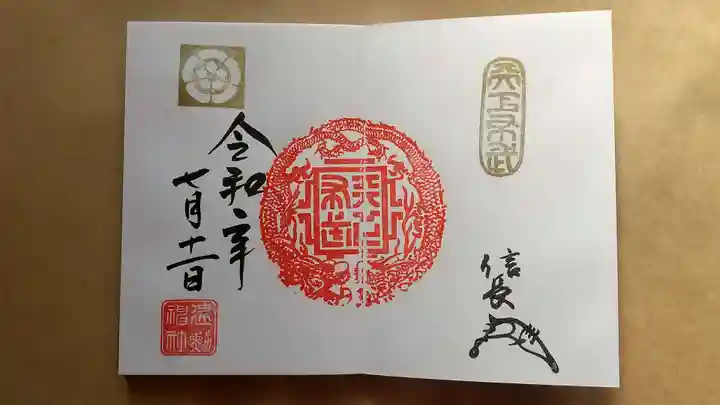 天下布武
信長
天下布武
令和二年
七月十一日
建勲神社